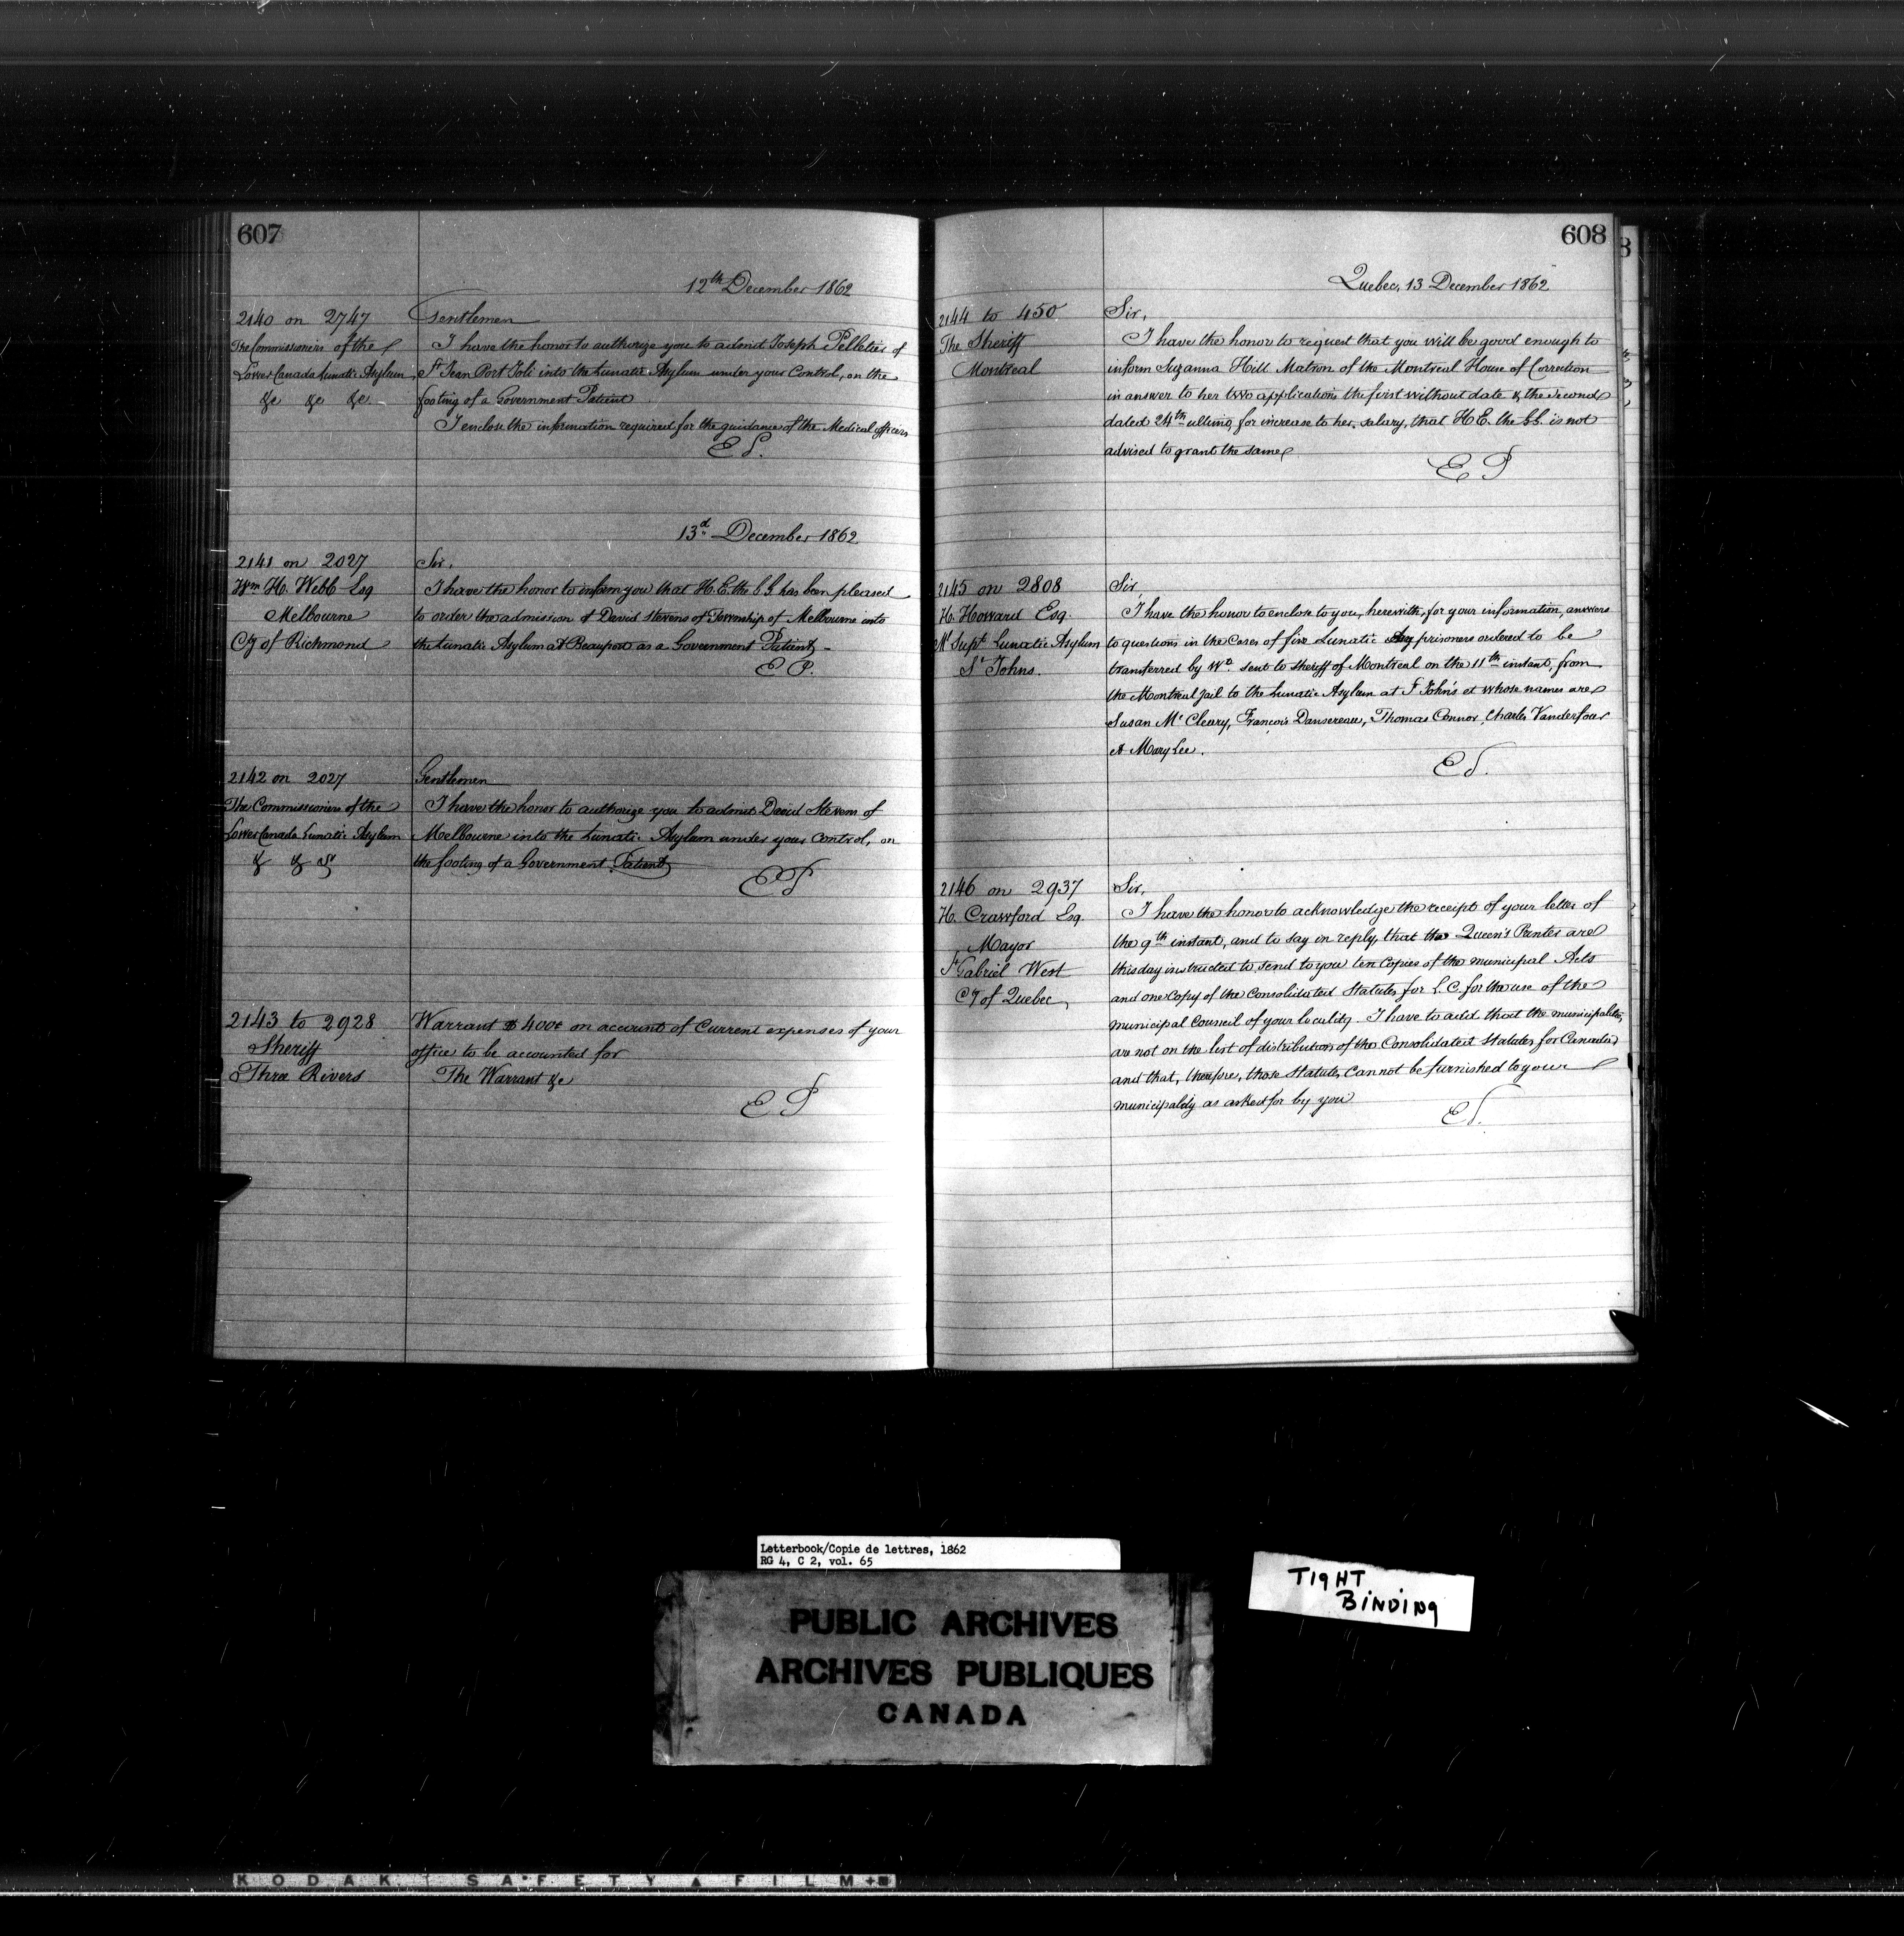 607
12th December 1862
2140 on 2747
The Commissioners of the
Lower Canada Lunatic Asylum
&c &c &c
Gentlemen
I have the honor to authorize you to admit Joseph Pelletier of
St Jean Port Joli into the Lunatic Asylum under your Control, on the
footing of a Government Patient
I enclose the information required for the guidance of the Medical officers
E P.
13d December 1862
2141 on 2027
Wm H. Webb Esq
Melbourne
Cy of Richmond
Sir,
I have the honor to inform you that H.E. the G G has been pleased
to order the admission of David Stevens of Township of Melbourne into
the Lunatic Asylum at Beauport as a Government Patient
E P.
2142 on 2027
The Commissioners of the
Lower Canada Lunatic Asylum
& & &
Gentlemen
I have the honor to authorize you to admit David Stevens of
Melbourne into the Lunatic Asylum under your Control, on
the footing of a Government Patient
E P
2143 to 2928
Sheriff
Three Rivers
Warrant $ 400 on account of Current expenses of your
office to be accounted for
The Warrant &c
E P
608
Quebec, 13 December 1862
2144 to 450
The Sheriff
Montreal
Sir,
I have the honor to request that you will be good enough to
inform Suzanna Hill Matron of the Montreal House of Correction
in answer to her two applications the first without date & the second
dated 24th ultimo, for increase to her salary, that H E. the G G. is not
advised to grant the same
E P
2145 on 2808
H. Howard Esq.
Ml Supt Lunatic Asylum
St Johns.
Sir,
I have the honor to enclose to you, herewith, for your information, answers
to questions in the Cases of five Lunatic prisoners ordered to be
transferred by Wt sent to Sheriff of Montreal on the 11th instant, from
the Montreal Jail to the Lunatic Asylum at St John's et whose names are
Susan Mc Cleary, François Dansereau, Thomas Connor, Charles Vanderfour
et Mary Lee.
E P.
2146 on 2937
H. Crawford Esq.
Mayor
St Gabriel West
Cy of Quebec
Sir,
I have the honor to acknowledge the receipt of your letter of
the 9th instant, and to say in reply, that the Queen's Printer are
this day instructed to send to you ten Copies of the municipal Acts
and one Copy of the Consolidated Statutes for L. C. for the use of the
municipal Council of your locality. I have to add that the municipalities
are not on the list of distribution of the Consolidated Statutes for Canada
and that, therefore, those Statutes Cannot be furnished to your
municipality as asked for by you
E P.
Letterbook/Copie de lettres, 1862
RG 4, C 2, vol. 65
PUBLIC ARCHIVES
ARCHIVES PUBLIQUES
CANADA
TIGHT
BINDING
KODAK SAFETY FILM